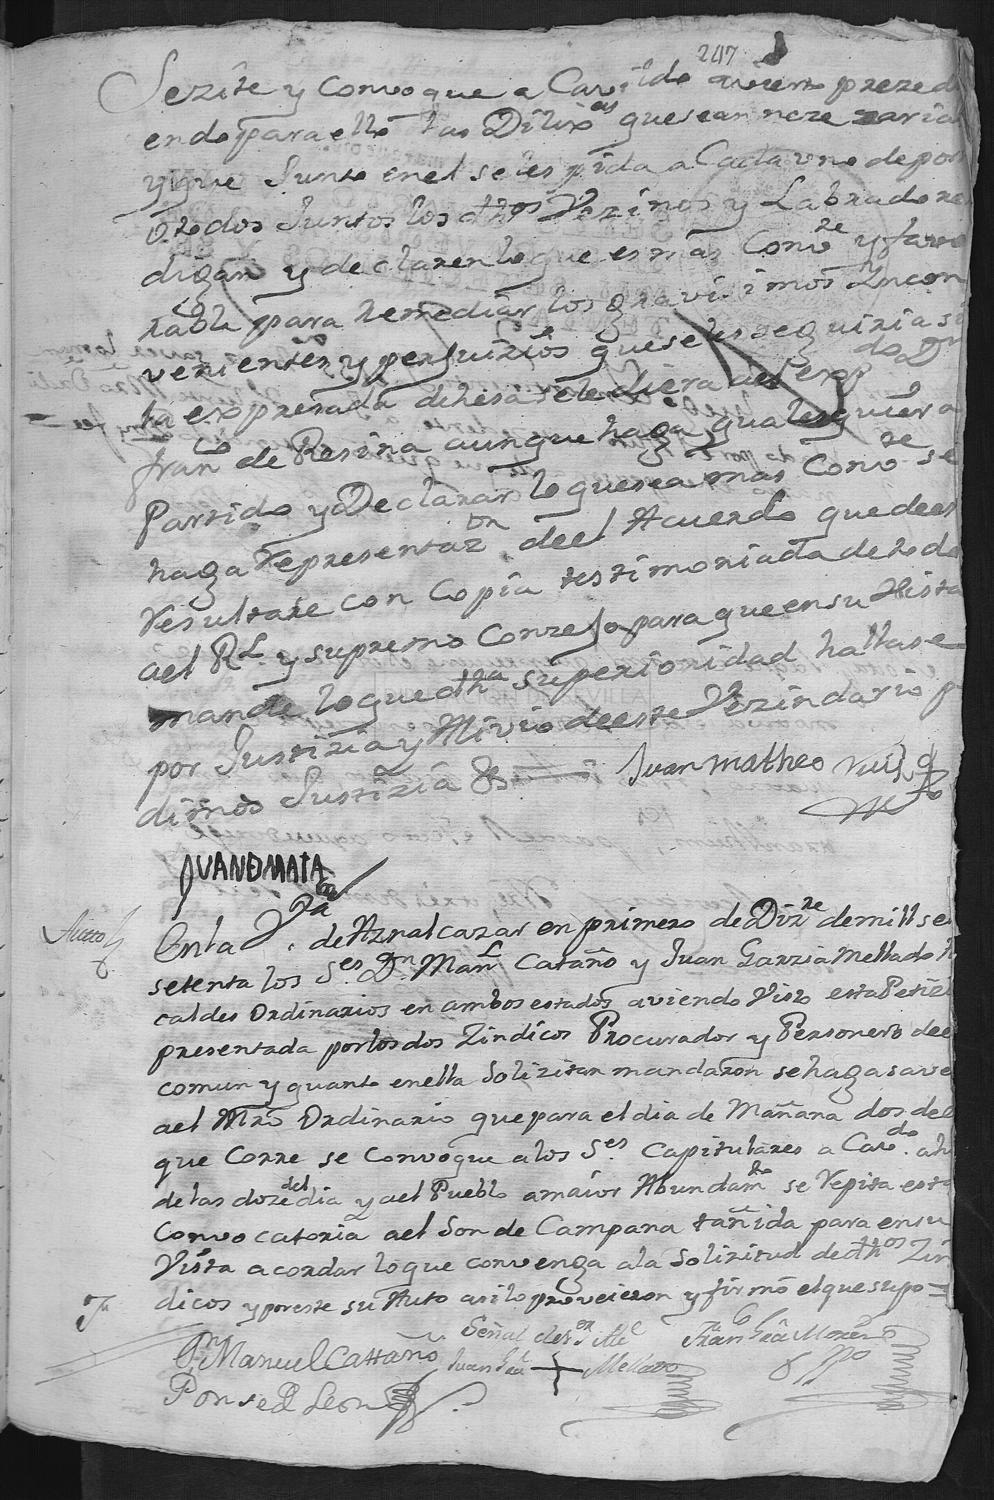 247
Sezite y Convoque a Cavildo avierto prezedi
endo para ello las Dilixas que sean neze zarias
y que Junto en el se les pida a Cada uno de por
o todos Juntos los dhos Vezinos y Labradores
digan y declaren lo que es mas Convte y favo
rable para remediar los gravisimos Yncon
venientes y perjuizios que se les seguiria si
la expresada dehesa se le diera ael expdo Dn
Franco de Resina aunque haga qualesquiera
Partido y Declarar lo que sea mas Convte se
haga representazon deel Acuerdo que de el
resultare con Copia testimoniada de todo
ael Rl y supremo Consejo para que en su Vista
mande lo que dha superioridad hallase
por Justizia y Alivio de este Vezindario p
dimos Justizia &
Juan Matheo Ruiz
JUAN D MATA
Auto
En la Va de Aznalcazar en primero de Dizre de mill se
setenta los Ses Dn Manl Cataño y Juan Garzia Mellado Al
caldes Ordinarios en ambos estados aviendo Visto esta Petizn
presentada por los dos Zindicos Procurador y Personero deel
comun y quanto en ella Solizitan mandaron se haga save
ael Mro Ordinario que para el dia de Mañana dos del
que Corre se Convoque a los Ses Capitulares a Cavdo a h
de las doze del dia y ael Pueblo a maior Abundamto se repita esta
Convocatoria ael Son de Campana tañida para en su
Vista acordar lo que convenga a la Solizitud de dhos Zin
dicos y por este su Auto asi lo proveieron y firmó el que supo =
Dn Manuel Cattaño
Ponse D Leon
Señal del Sr Alc
Juan Ga + Mellado
Fran Ga Moreno